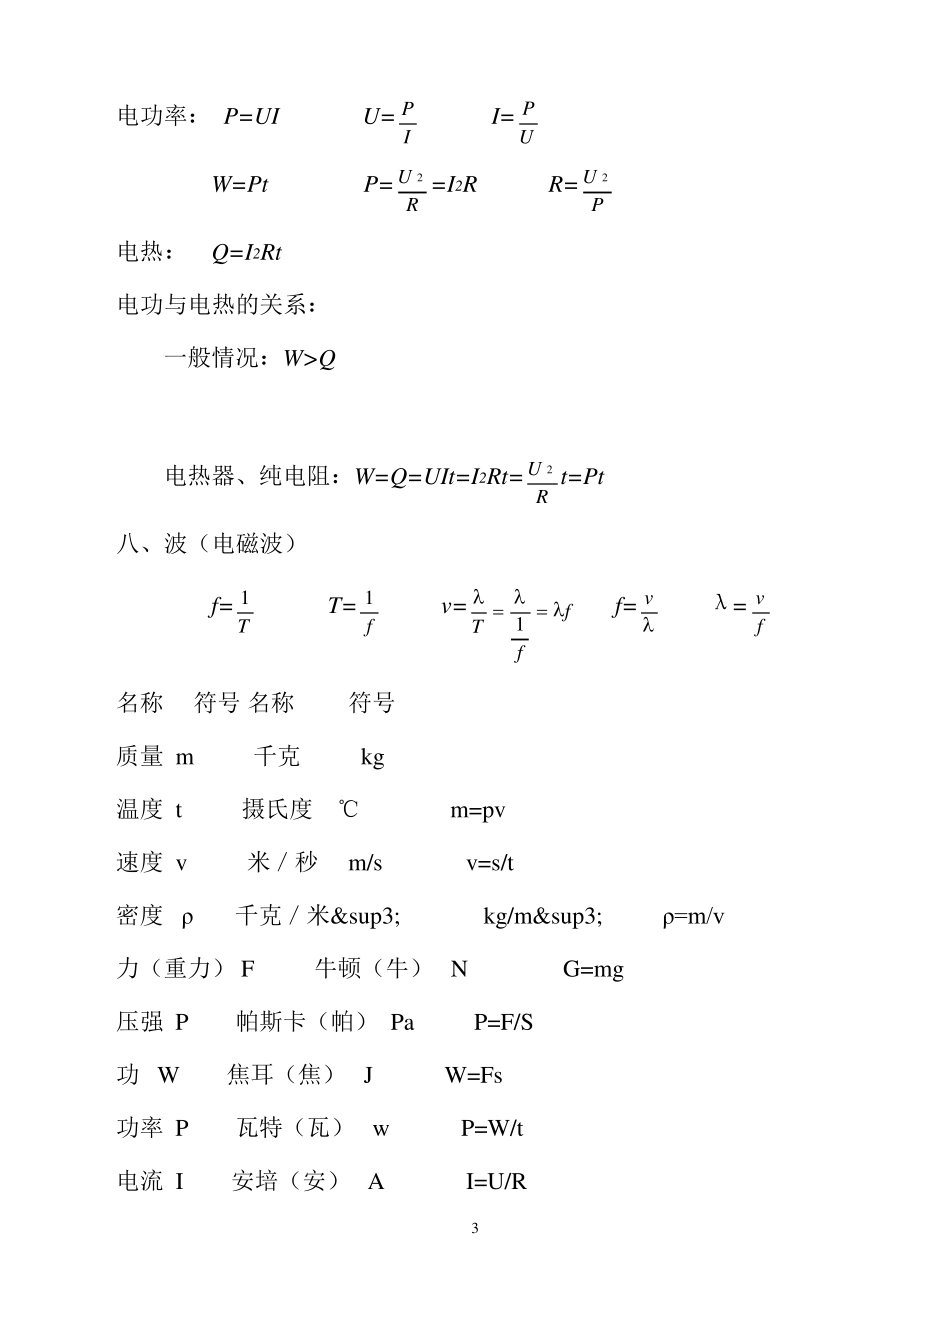 电功率： P=UI U=P/I I=P/U
W=Pt P=U2/R=I2R R=U2/P
电热： Q=I2Rt
电功与电热的关系：
一般情况：W>Q
电热器、纯电阻：W=Q=UIt=I2Rt=U2/Rt=Pt
八、波（电磁波）
f=1/T T=1/f v=λ/T=λ/(1/f)=λf f=v/λ λ=v/f
名称 符号 名称 符号
质量 m 千克 kg
温度 t 摄氏度 ℃ m=pv
速度 v 米／秒 m/s v=s/t
密度 ρ 千克／米&sup3; kg/m&sup3; ρ=m/v
力（重力） F 牛顿（牛） N G=mg
压强 P 帕斯卡（帕） Pa P=F/S
功 W 焦耳（焦） J W=Fs
功率 P 瓦特（瓦） w P=W/t
电流 I 安培（安） A I=U/R
3